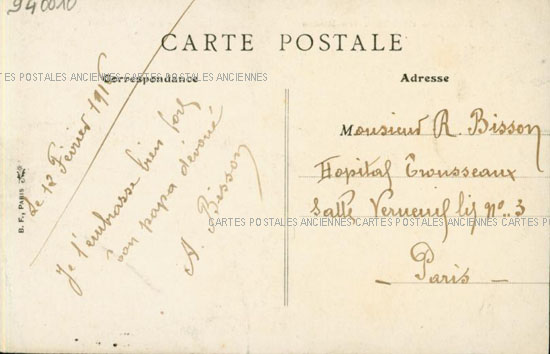 940010
CARTE POSTALE
CARTES POSTALES ANCIENNES CARTES POSTALES ANCIENNES
Correspondance
Adresse
CARTES POSTALES ANCIENNES CARTES POSTALES ANCIENNES
B. F., PARIS
Le 12 Février
Je t'embrasse bien fort
ton papa dévoué
A. Bisson
Monsieur R. Bisson
Hopital Trousseaux
Salle Verneuil lit nº 3
CARTES POSTALES ANCIENNES CARTES POSTALES ANCIENNES
— Paris —